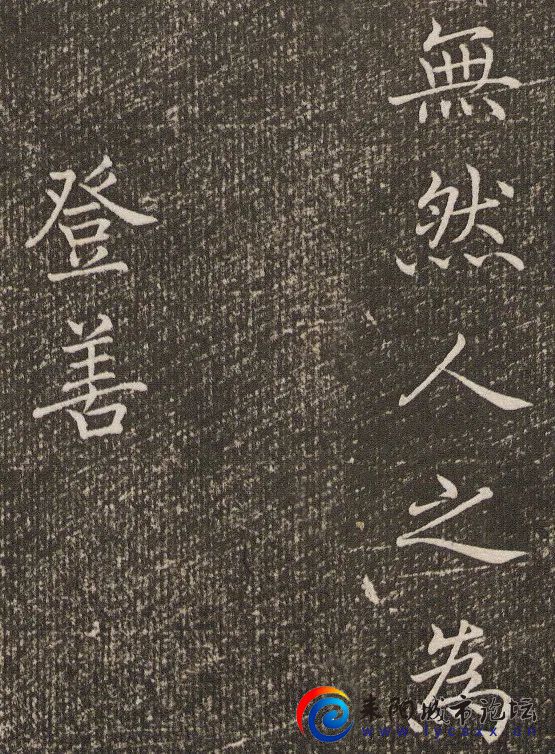 無然人之為
登善
耒阳城市论坛
www.lycsx.cn